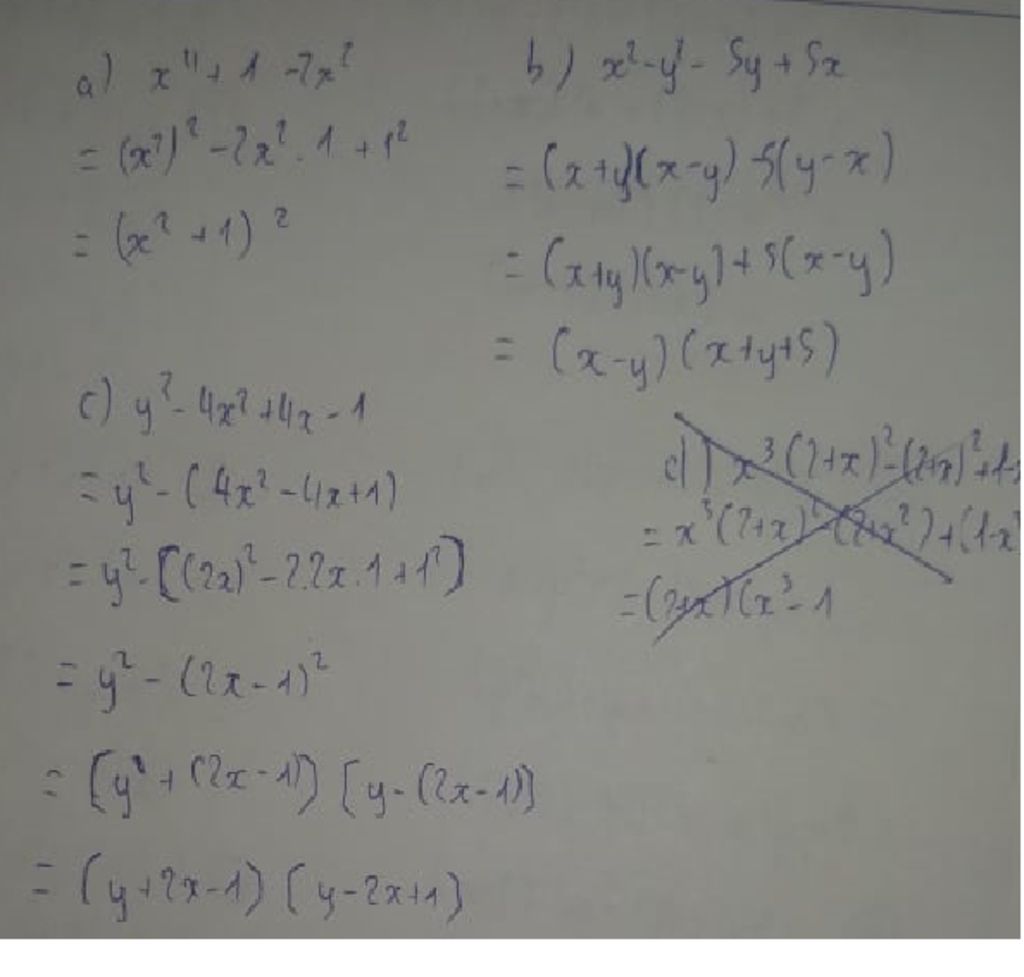 a) x⁴ + 1 - 2x²
= (x²)² - 2x² . 1 + 1²
= (x² + 1)²
b) x² - y² - 5y + 5x
= (x+y)(x-y) - 5(y-x)
= (x+y)(x-y) + 5(x-y)
= (x-y)(x+y+5)
c) y² - 4x² + 4x - 1
= y² - (4x² - 4x + 1)
= y² - [(2x)² - 2.2x.1 + 1²]
= y² - (2x - 1)²
= [y + (2x - 1)] [y - (2x - 1)]
= (y + 2x - 1) (y - 2x + 1)
d) x³(2+x)² - (2+x)² + 1-x
= x³(2+x)² (2+x²) + (1-x³
= (2+x)(x³ - 1